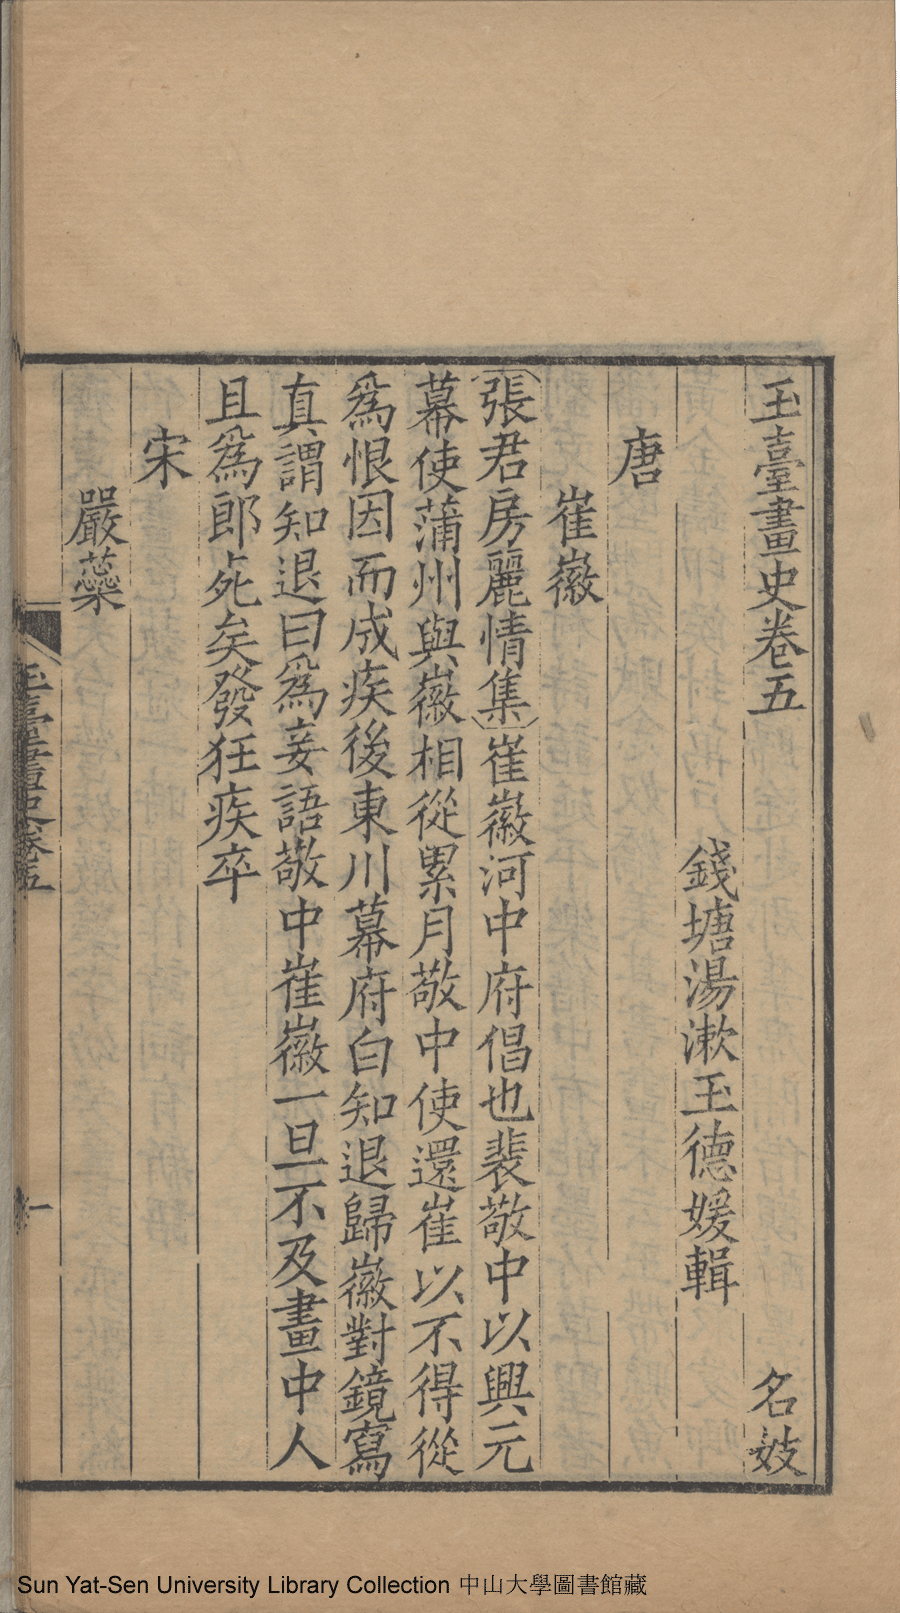 玉臺畫史卷五 名妓
錢塘湯漱玉德媛輯
唐
崔徽
(張君房麗情集)崔徽河中府倡也裴敬中以興元
幕使蒲州與徽相從累月敬中使還崔以不得從
爲恨因而成疾後東川幕府白知退歸徽對鏡寫
真謂知退曰爲妾語敬中崔徽一旦不及畫中人
且爲郎死矣發狂疾卒
宋
嚴蘂
玉臺畫史卷五
一
Sun Yat-Sen University Library Collection 中山大學圖書館藏